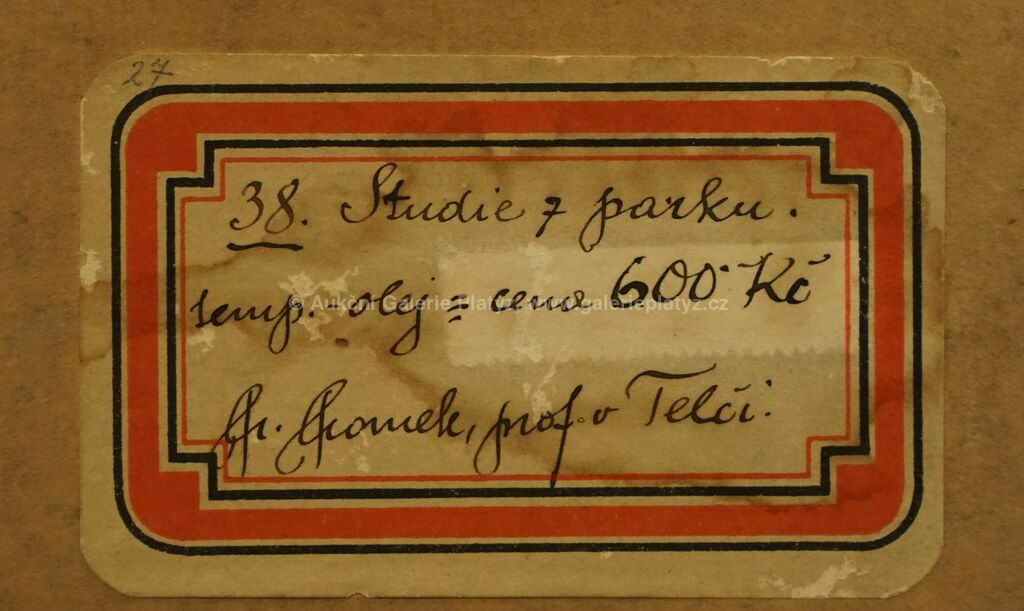 27
38. Studie z parku.
temp.-olej = cena 600 Kč
© Aukční Galerie Platýz, www.galerieplatyz.cz
Fr. Fromek, prof. v Telči.